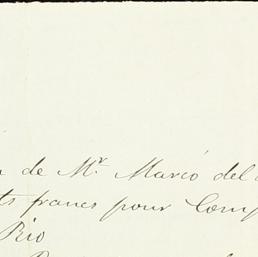 de Mr. Marcó del
ts francs pour Comp
Rio